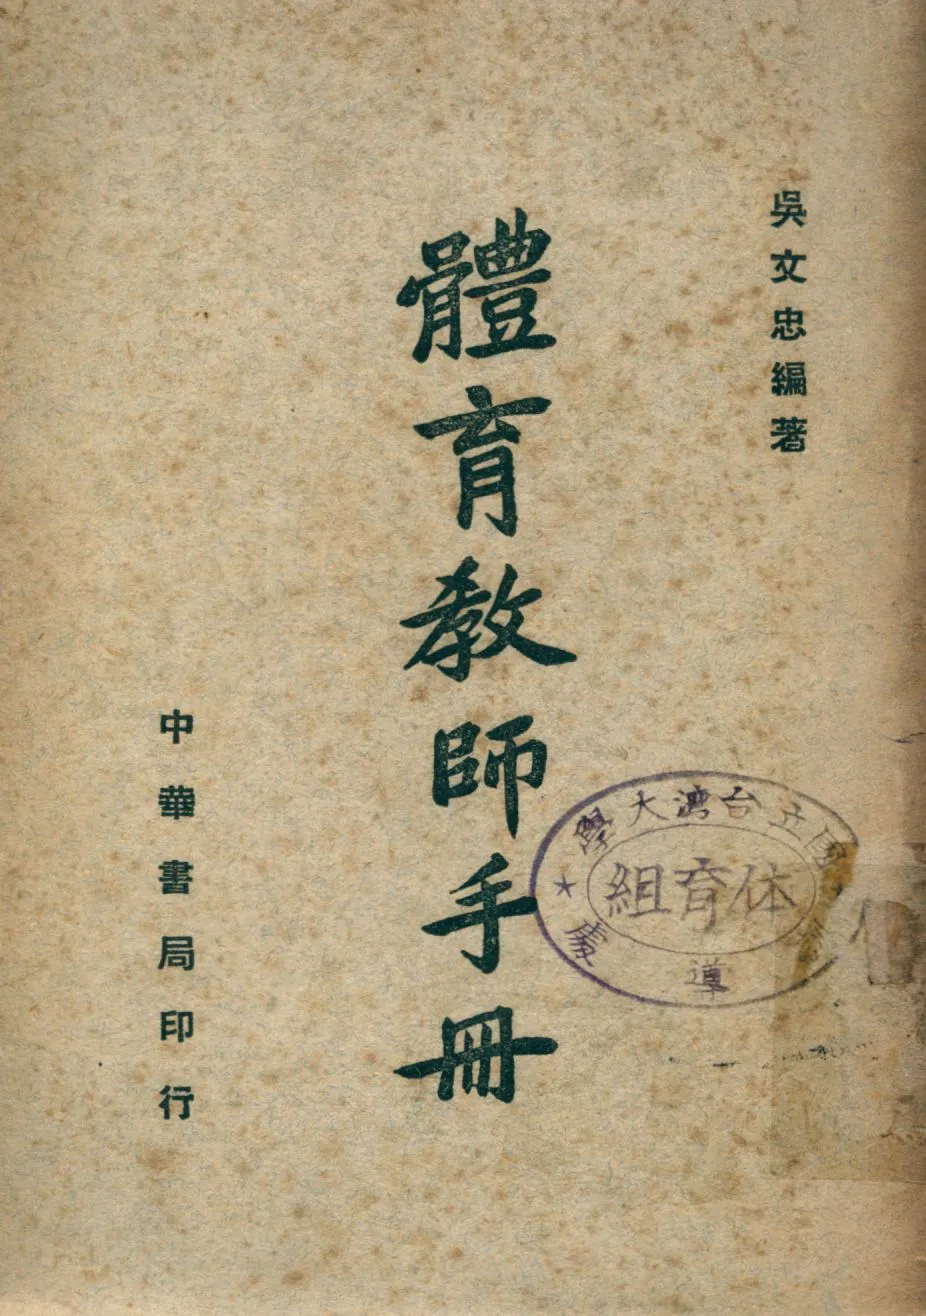 吳文忠編著
體育教師手冊
中華書局印行
國立台灣大學
体育組
導處